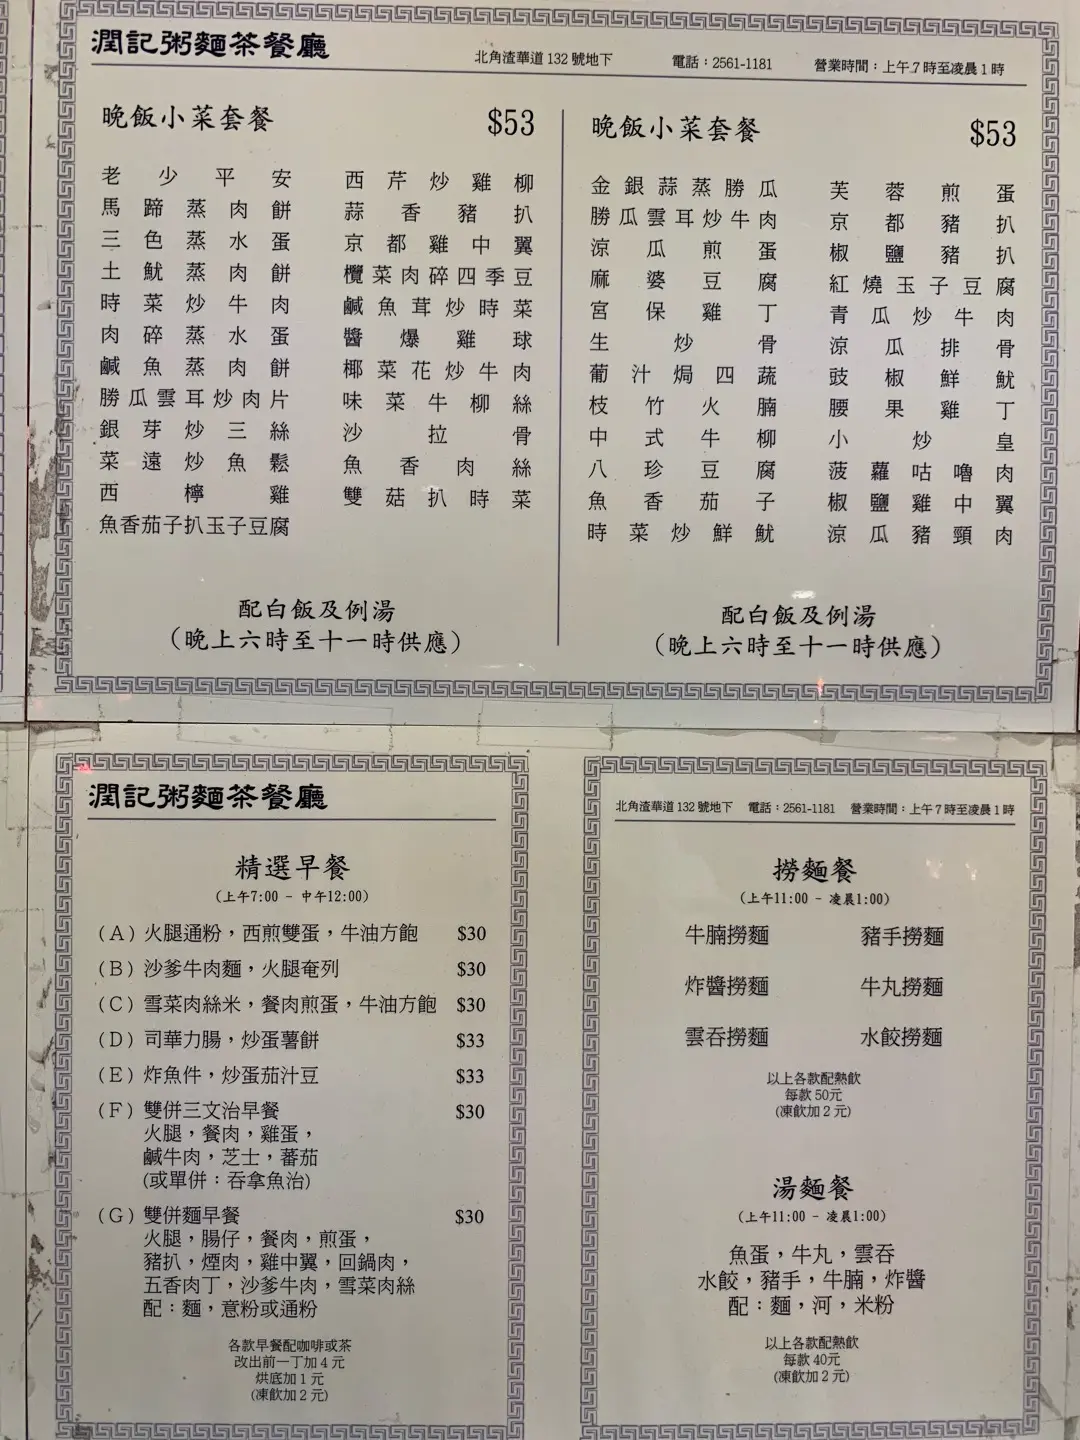 潤記粥麵茶餐廳
北角渣華道 132 號地下 電話：2561-1181 營業時間：上午 7 時至凌晨 1 時
晚飯小菜套餐 $53
老少平安
馬蹄蒸肉餅
三色蒸水蛋
土魷蒸肉餅
時菜炒牛肉
肉碎蒸水蛋
鹹魚蒸肉餅
勝瓜雲耳炒肉片
銀芽炒三絲
菜遠炒魚鬆
西檸雞
魚香茄子扒玉子豆腐
西芹炒雞柳
蒜香豬扒
京都雞中翼
欖菜肉碎四季豆
鹹魚茸炒時菜
醬爆雞球
椰菜花炒牛肉
味菜牛柳絲
沙拉骨
魚香肉絲
雙菇扒時菜
配白飯及例湯
（晚上六時至十一時供應）
晚飯小菜套餐 $53
金銀蒜蒸勝瓜
勝瓜雲耳炒牛肉
涼瓜煎蛋
麻婆豆腐
宮保雞丁
生炒骨
葡汁焗四蔬
枝竹火腩
中式牛柳
八珍豆腐
魚香茄子
時菜炒鮮魷
芙蓉煎蛋
京都豬扒
椒鹽豬扒
紅燒玉子豆腐
青瓜炒牛肉
涼瓜排骨
豉椒鮮魷
腰果雞丁
小炒皇
菠蘿咕嚕肉
椒鹽雞中翼
涼瓜豬頸肉
配白飯及例湯
（晚上六時至十一時供應）
潤記粥麵茶餐廳
精選早餐
（上午7:00 － 中午12:00）
（A）火腿通粉，西煎雙蛋，牛油方飽 $30
（B）沙爹牛肉麵，火腿奄列 $30
（C）雪菜肉絲米，餐肉煎蛋，牛油方飽 $30
（D）司華力腸，炒蛋薯餅 $33
（E）炸魚件，炒蛋茄汁豆 $33
（F）雙併三文治早餐 $30
火腿，餐肉，雞蛋，
鹹牛肉，芝士，蕃茄
(或單併：吞拿魚治)
（G）雙併麵早餐 $30
火腿，腸仔，餐肉，煎蛋，
豬扒，煙肉，雞中翼，回鍋肉，
五香肉丁，沙爹牛肉，雪菜肉絲
配：麵，意粉或通粉
各款早餐配咖啡或茶
改出前一丁加 4 元
烘底加 1 元
(凍飲加 2 元)
北角渣華道 132 號地下 電話：2561-1181 營業時間：上午 7 時至凌晨 1 時
撈麵餐
（上午11:00 － 凌晨1:00）
牛腩撈麵 豬手撈麵
炸醬撈麵 牛丸撈麵
雲吞撈麵 水餃撈麵
以上各款配熱飲
每款 50元
(凍飲加 2 元)
湯麵餐
（上午11:00 － 凌晨1:00）
魚蛋，牛丸，雲吞
水餃，豬手，牛腩，炸醬
配：麵，河，米粉
以上各款配熱飲
每款 40元
(凍飲加 2 元)